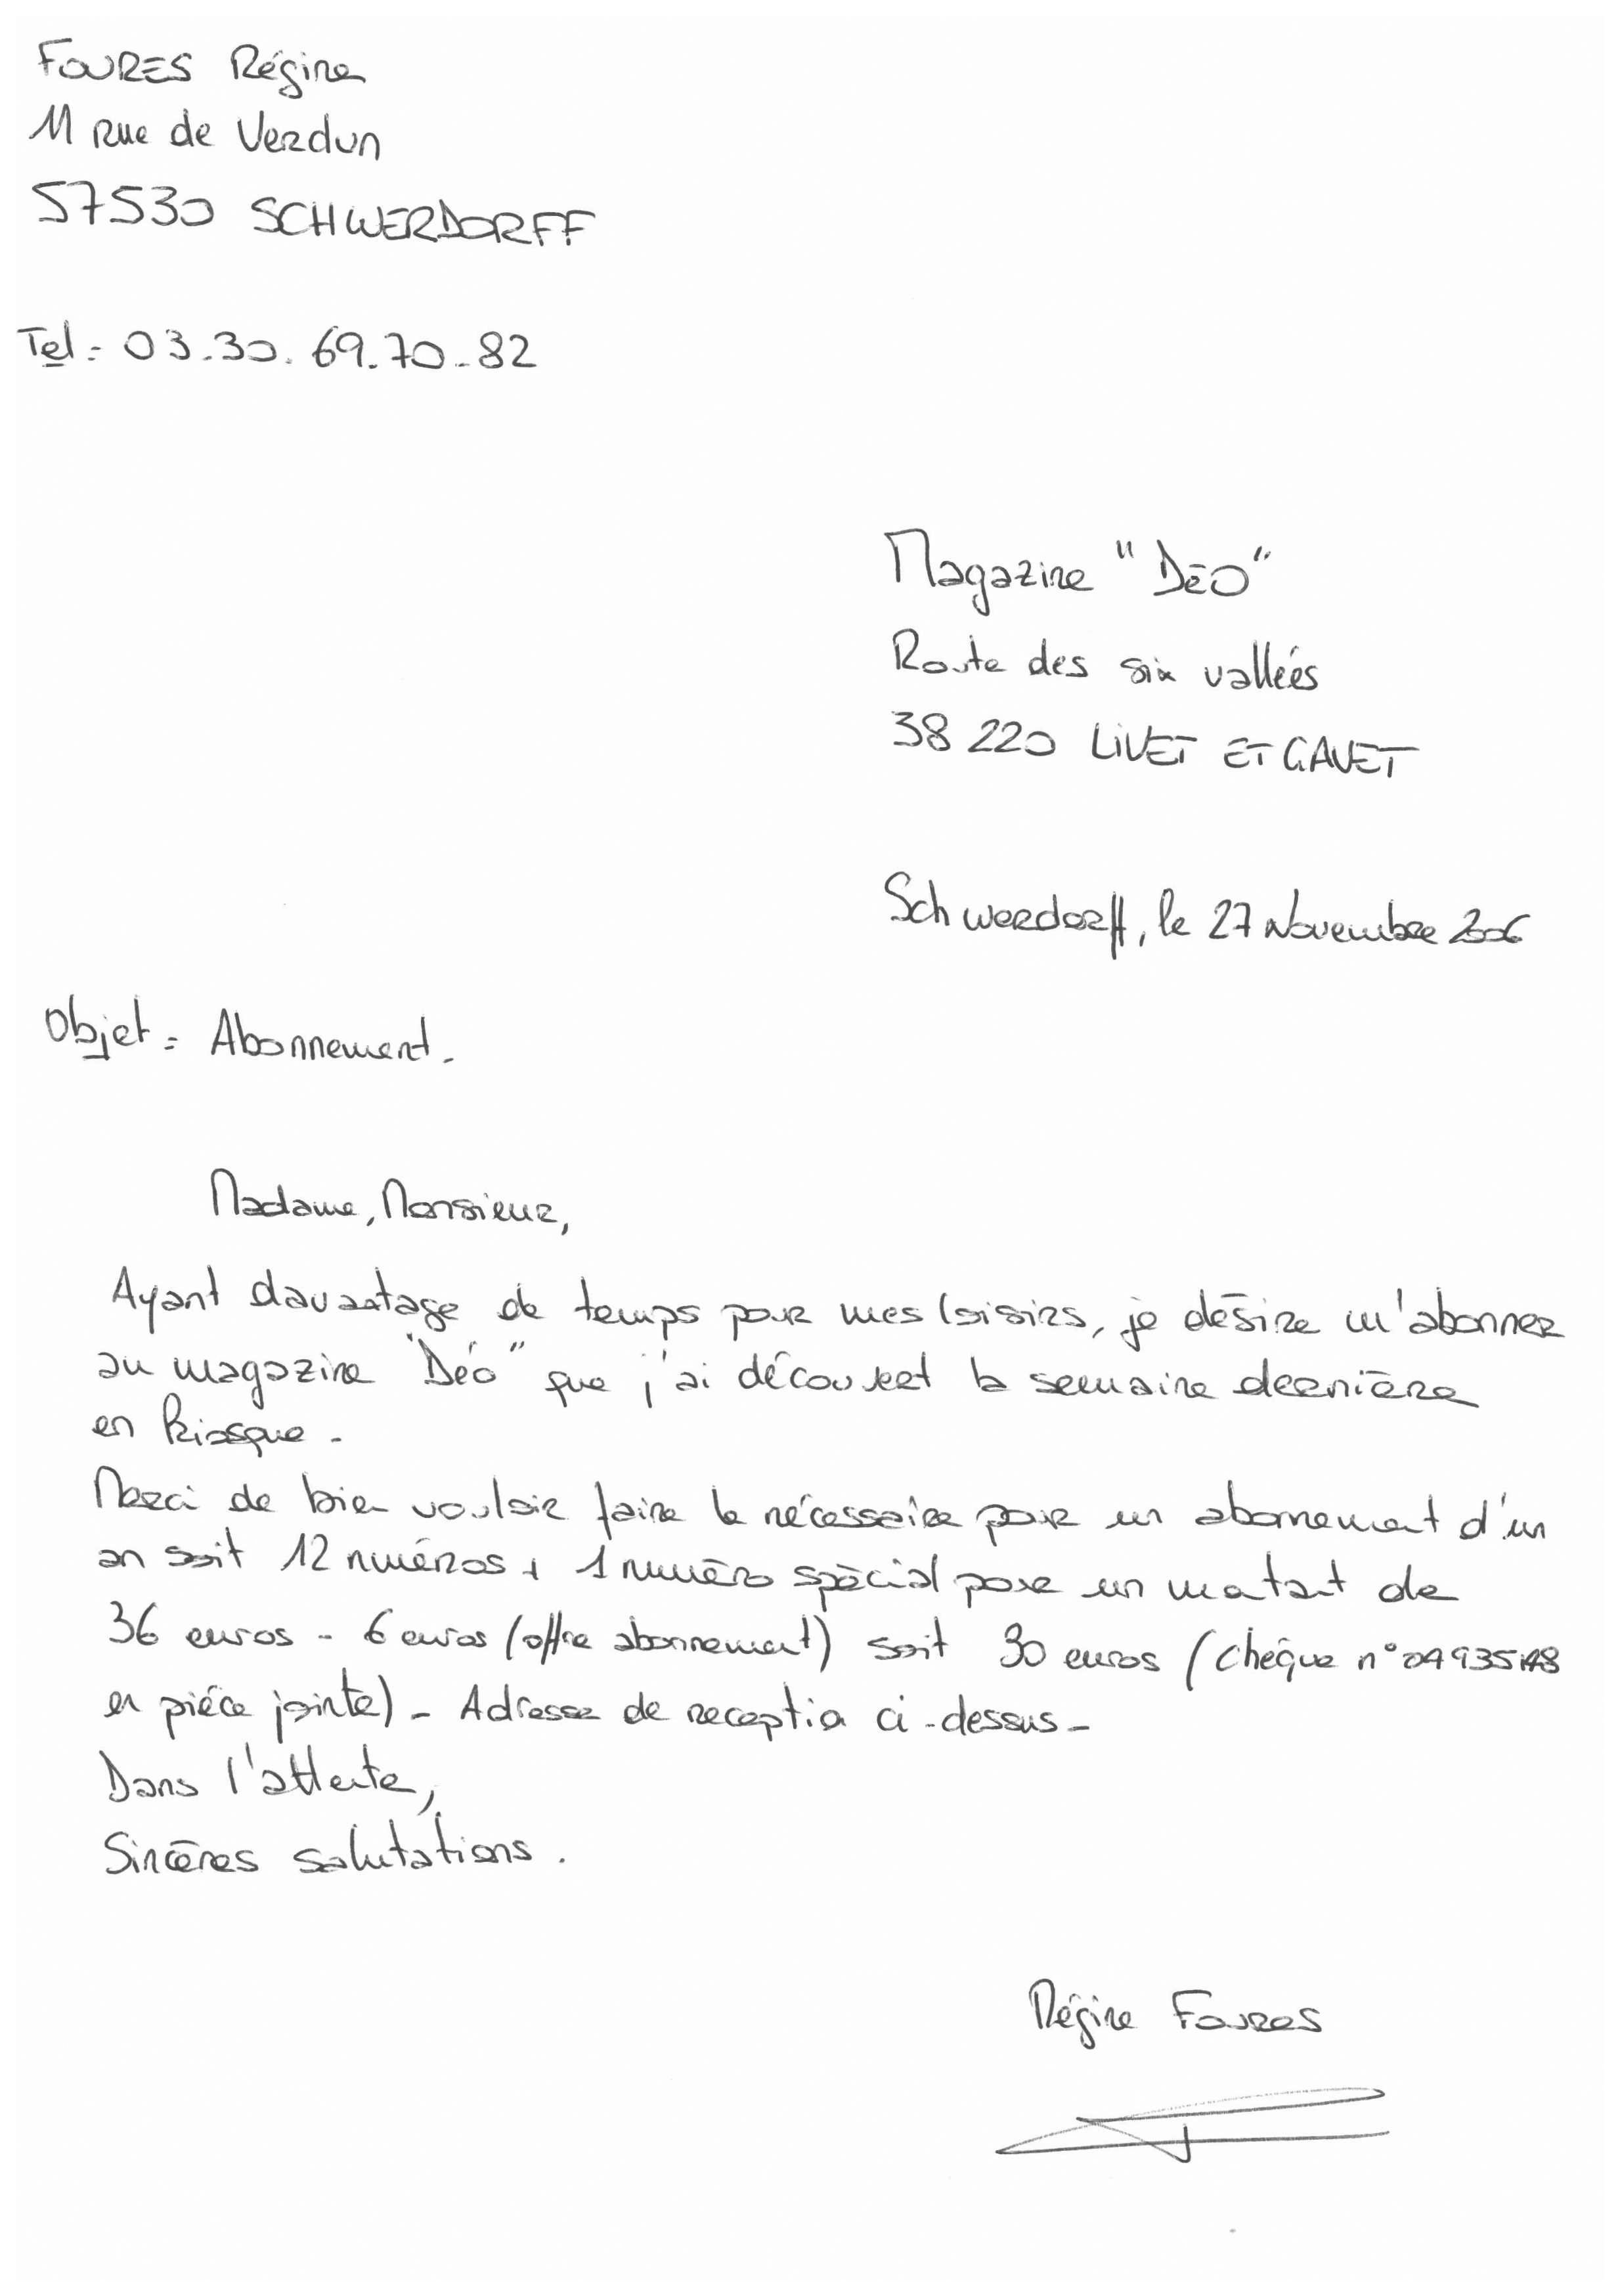 FOURES Régine
11 rue de Verdun
57530 SCHWERDORFF
Tel : 03.30.69.70.82
Magazine "Déo"
Route des six vallées
38 220 LIVET ET GAVET
Schwerdorff, le 27 Novembre 2006
Objet : Abonnement.
Madame, Monsieur,
Ayant davantage de temps pour mes loisirs, je désire m'abonner
au magazine "Déo" que j'ai découvert la semaine dernière
en kiosque.
Merci de bien vouloir faire le nécessaire pour un abonnement d'un
an soit 12 numéros + 1 numéro spécial pour un montant de
36 euros - 6 euros (offre abonnement) soit 30 euros (chèque n°
en pièce jointe) - Adresse de reception ci-dessus -
Dans l'attente,
Sincères salutations.
Régine Foures